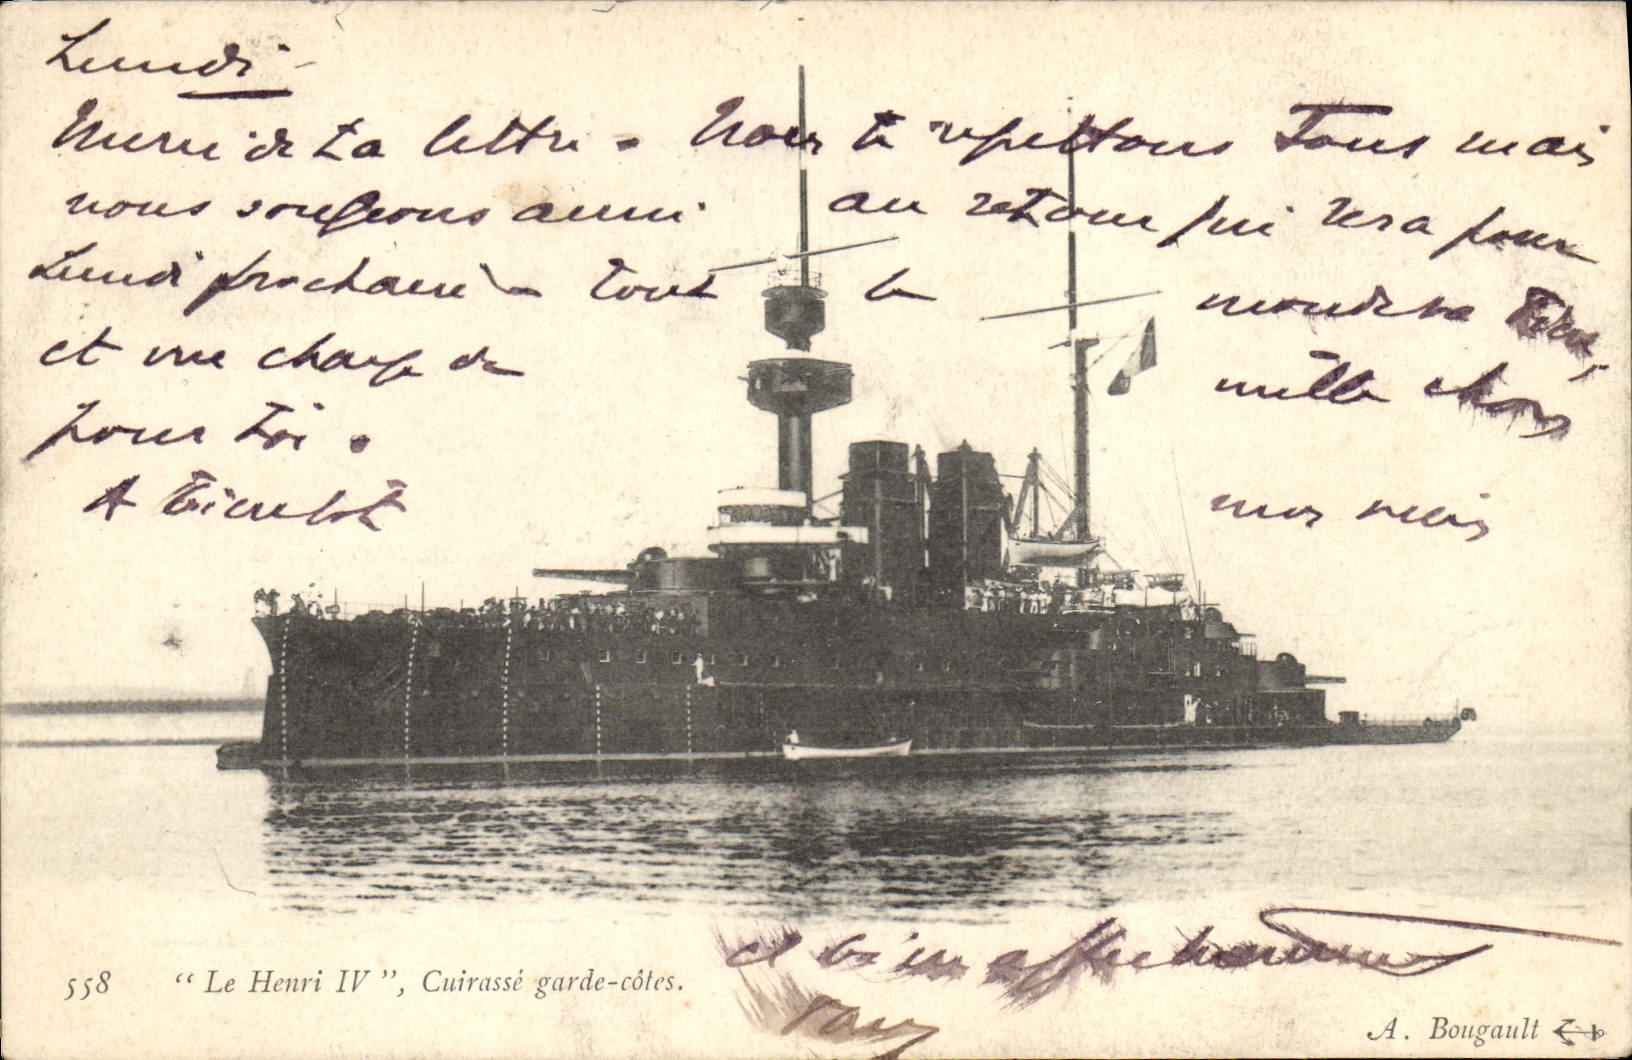 Lundi
Merci de ta lettre. Nous te repettons Tous mais
nous songeons aussi au retour qui sera pour
Lundi prochain - tout le monde va bien
et me charge de mille choses
pour toi.
A bientot
et bien affectueusement
558 “Le Henri IV”, Cuirassé garde-côtes.
A. Bougault